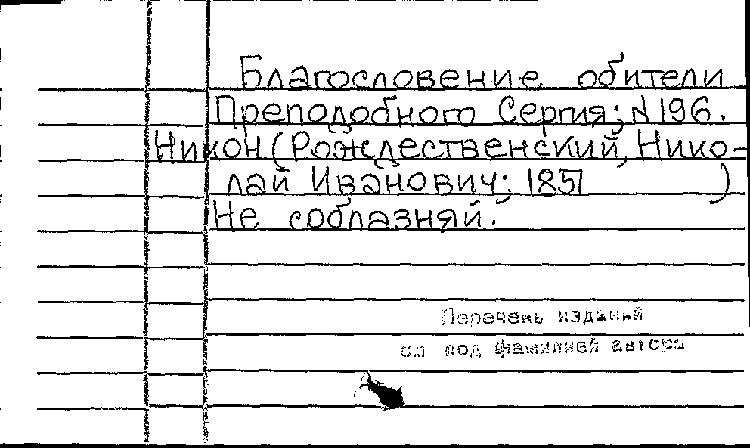 Благословение обители
Преподобного Сергия; №196.
Никон (Рождественский, Нико-
лай Иванович; 1851 )
Не соблазняй.
Перечень изданий
см под фамилией автора